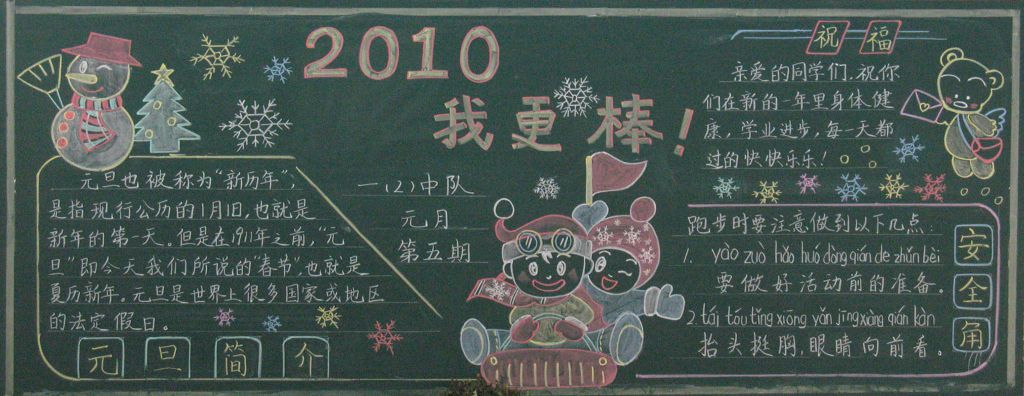 2010
我更棒!
元旦也被称为“新历年”,
是指现行公历的1月1日,也就是
新年的第一天。但是在1911年之前,“元
旦”即今天我们所说的“春节”,也就是
夏历新年。元旦是世界上很多国家或地区
的法定假日。
元旦简介
一(2)中队
元月
第五期
祝福
亲爱的同学们,祝你
们在新的一年里身体健
康,学业进步,每一天都
过的快快乐乐!
跑步时要注意做到以下几点:
1. yào zuò hǎo huó dòng qián de zhǔn bèi
要做好活动前的准备。
2. tái tóu tǐng xiōng yǎn jīng xiàng qián kàn
抬头挺胸,眼睛向前看。
安全角